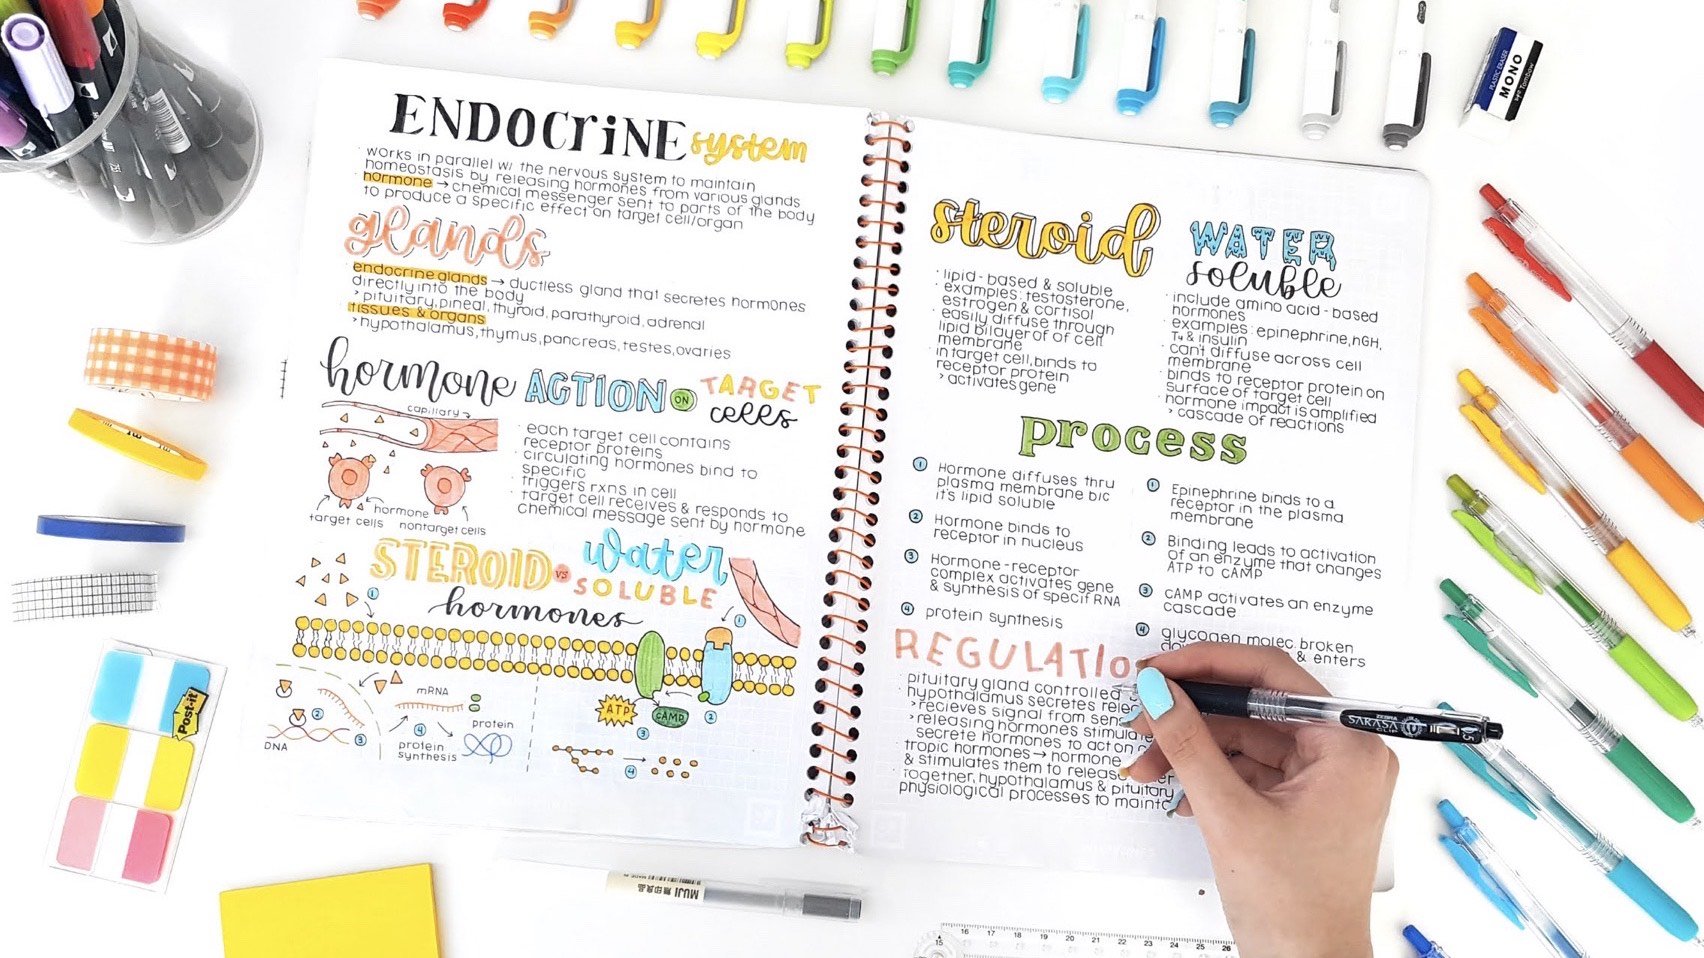 ENDOCRINE system
works in parallel w/ the nervous system to maintain
homeostasis by releasing hormones from various glands
hormone → chemical messenger sent to parts of the body
to produce a specific effect on target cell/organ
glands
endocrine glands → ductless gland that secretes hormones
directly into the body
> pituitary, pineal, thyroid, parathyroid, adrenal
tissues & organs
> hypothalamus, thymus, pancreas, testes, ovaries
hormone ACTION ON TARGET
cells
capillary
hormone
target cells
nontarget cells
each target cell contains
receptor proteins
circulating hormones bind to
specific
triggers rxns in cell
target cell receives & responds to
chemical message sent by hormone
STEROID vs water
SOLUBLE
hormones
1
1
mRNA
2
DNA
3
4
protein
synthesis
protein
ATP
CAMP
2
3
4
steroid
lipid-based & soluble
examples: testosterone,
estrogen & cortisol
easily diffuse through
lipid bilayer of of cell
membrane
in target cell, binds to
receptor protein
> activates gene
WATER
soluble
include amino acid-based
hormones
examples: epinephrine, hGH,
T4 & insulin
can't diffuse across cell
membrane
binds to receptor protein on
surface of target cell
hormone impact is amplified
> cascade of reactions
process
1 Hormone diffuses thru
plasma membrane b/c
it's lipid soluble
2 Hormone binds to
receptor in nucleus
3 Hormone-receptor
complex activates gene
& synthesis of specif RNA
4 protein synthesis
1 Epinephrine binds to a
receptor in the plasma
membrane
2 Binding leads to activation
of an enzyme that changes
ATP to CAMP
3 CAMP activates an enzyme
cascade
4 glycogen molec. broken
& enters
REGULATIO
pituitary gland controlled
hypothalamus secretes relea
> recieves signal from sens
> releasing hormones stimulate
secrete hormones to act on
tropic hormones → hormone
& stimulates them to release
together, hypothalamus & pituitary
physiological processes to mainta
MONO
PLASTIC ERASER
Tombow
Post-it
MUJI 無印良品
ZEBRA
SARASA
CLIP
0.5
15
16 17 18 19 20 21 22 23 24 25 26